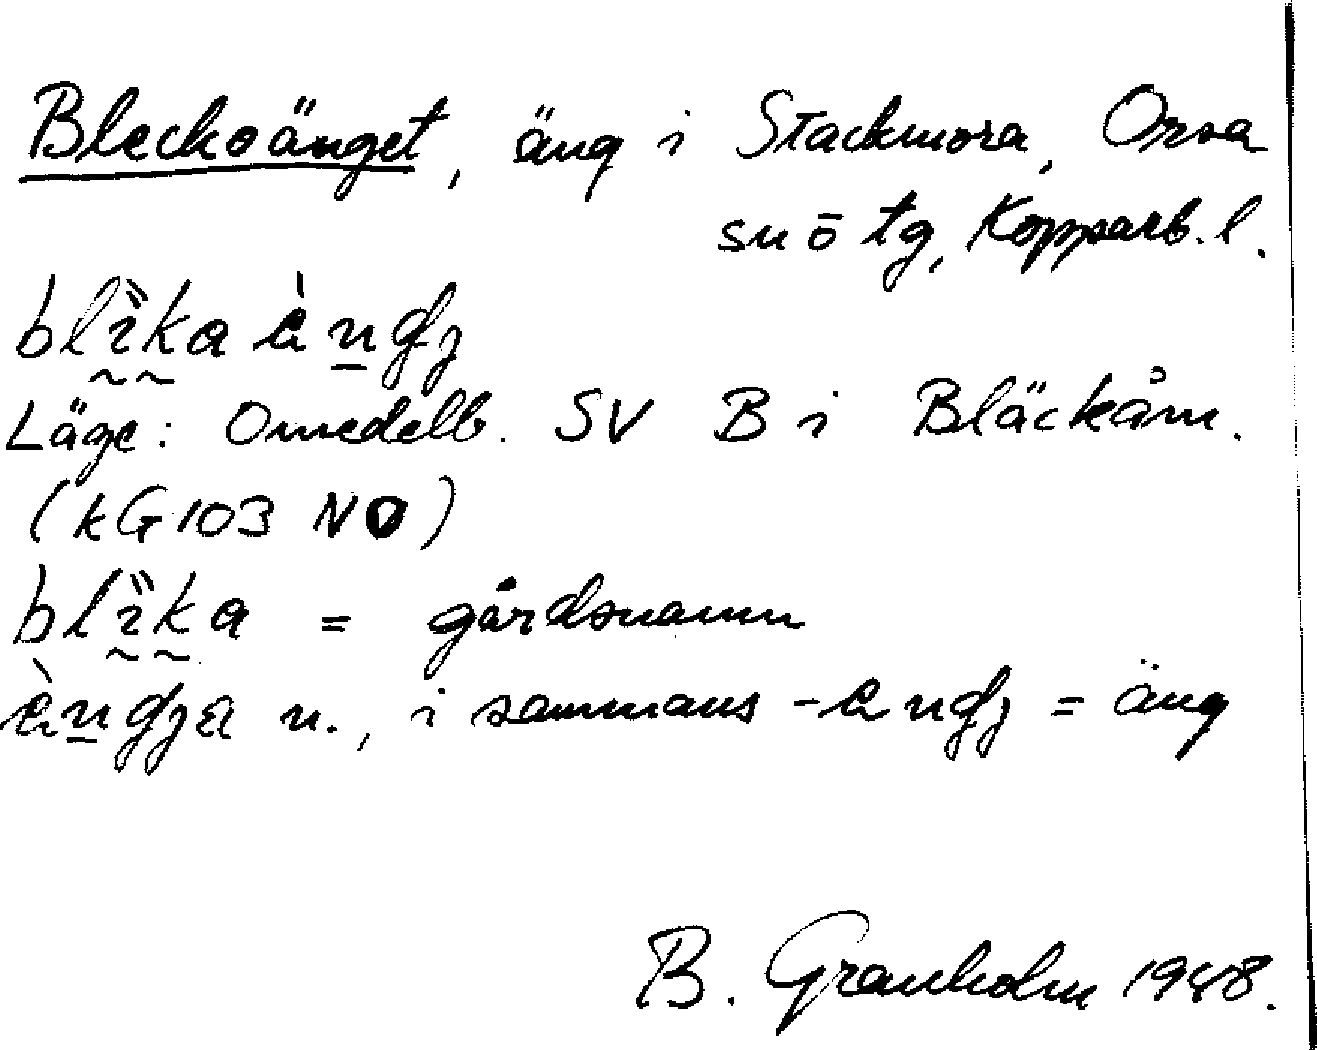 Bleckoänget, äng i Stackmora, Orsa
sn ö tg, Kopparb. l.
blı̏ka àndʒ
Läge: Omedelb. SV B i Bläckåm.
(kG103 NO)
blı̏ka = gårdsnamn
àndʒa n., i sammans -andʒ = äng
B. Granholm 1948.